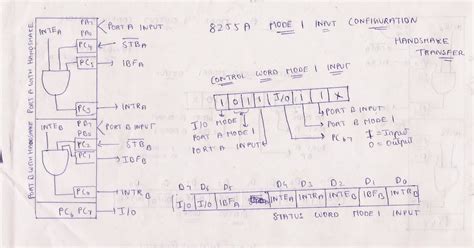 8255A MODE 1 INPUT CONFIGURATION
HANDSHAKE
TRANSFER
PORT A WITH HANDSHAKE
INTEA
PA7
PA0
PORT A INPUT
PC4
STBA
PC5
IBFA
PC3
INTRA
PORT B WITH HANDSHAKE
INTEB
PB7
PB0
PORT B INPUT
PC2
STBB
PC1
IBFB
PC0
INTRB
PC6 PC7
I/O
CONTROL WORD MODE 1 INPUT
1 0 1 1 I/O 1 1 X
I/O MODE
PORT A MODE 1
PORT A INPUT
PORT B INPUT
PORT B MODE 1
PC6,7
1 = Input
0 = Output
D7 D6 D5 D4 D3 D2 D1 D0
I/O I/O IBFA INTEA INTRA INTEB IBFB INTRB
STATUS WORD MODE 1 INPUT